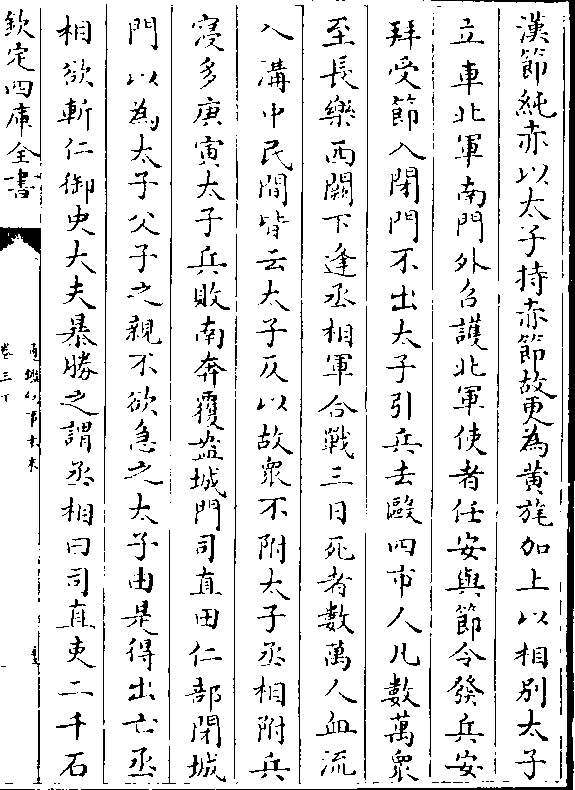 漢節純赤以太子持赤節故更為黃旄加上以相別太子
立車北軍南門外召護北軍使者任安與節令發兵安
拜受節入閉門不出太子引兵去敺四市人凡數萬衆
至長樂西闕下逢丞相軍合戰三日死者數萬人血流
入溝中民間皆云太子反以故衆不附太子丞相附兵
寖多庚寅太子兵敗南奔覆盎城門司直田仁部閉城
門以為太子父子之親不欲急之太子由是得出亡丞
相欲斬仁御史大夫暴勝之謂丞相曰司直吏二千石
欽定四庫全書
通鑑紀事本末
卷三下